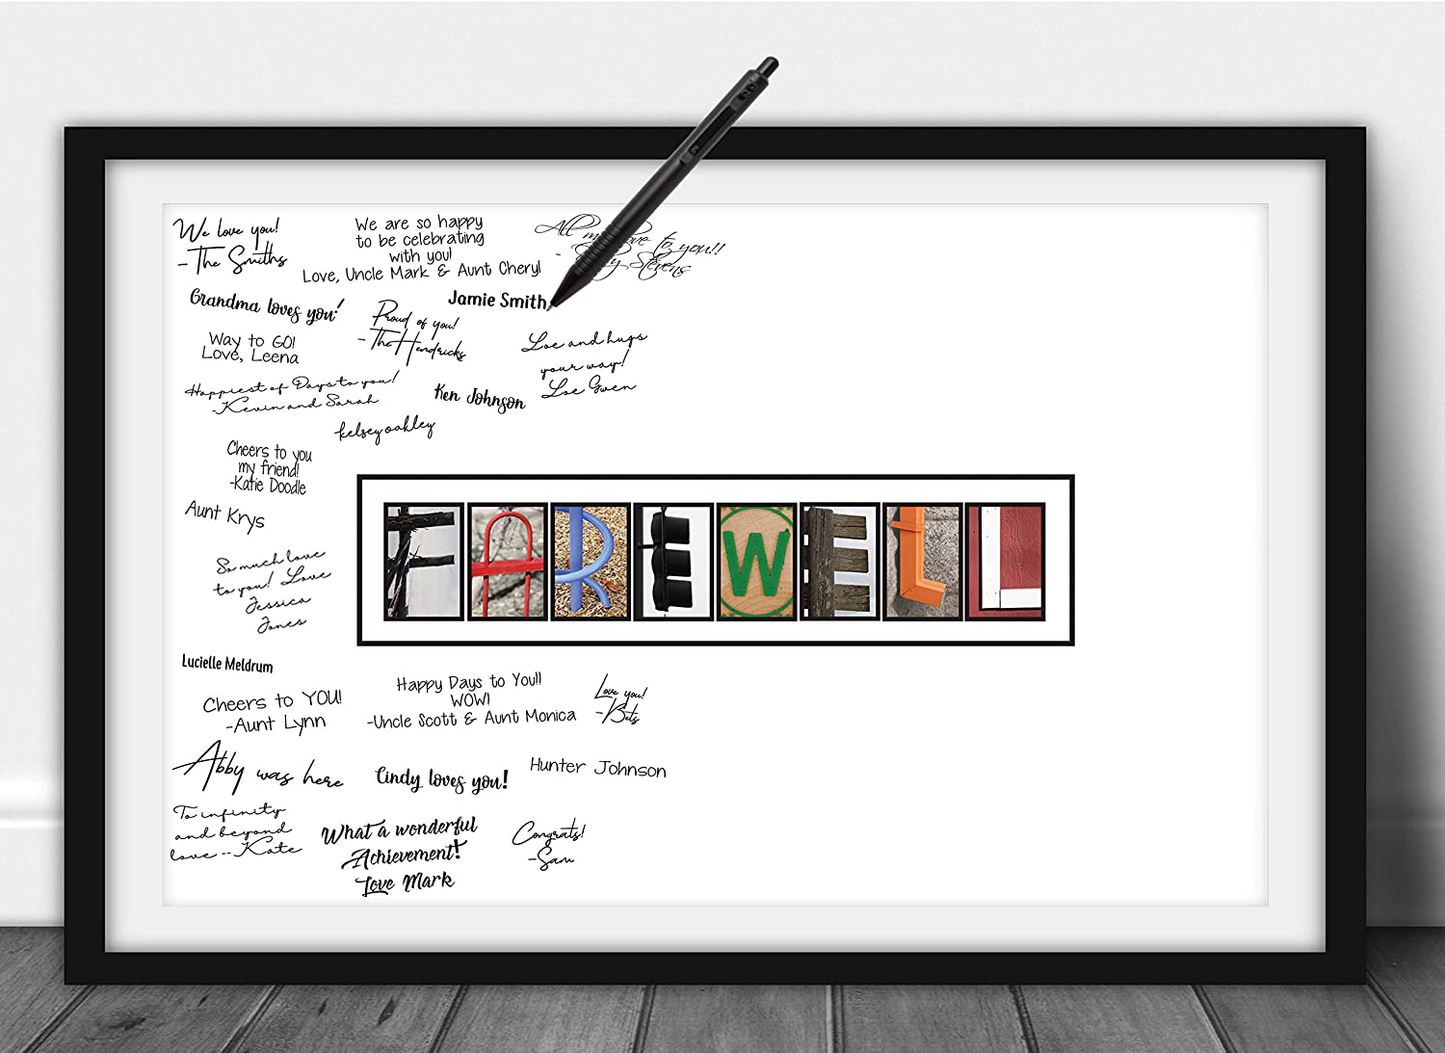 We love you!
-The Smiths
We are so happy
to be celebrating
with you!
Love, Uncle Mark & Aunt Cheryl
All my love to you!!
Stevens
Grandma loves you!
Proud of you!
-The Hendricks
Jamie Smith
Way to GO!
Love, Leena
Loe and hugs
your way!
Loe Gwen
Happiest of Days to you!
-Kevin and Sarah
Ken Johnson
kelsey oakley
Cheers to you
my friend!
-Katie Doodle
Aunt Krys
FAREWELL
So much love
to you! Love
Jessica
Jones
Lucielle Meldrum
Cheers to YOU!
-Aunt Lynn
Happy Days to You!!
WOW!
-Uncle Scott & Aunt Monica
Love you!
-Bets
Abby was here
Cindy loves you!
Hunter Johnson
To infinity
and beyond
love -- Kate
What a wonderful
Achievement!
Love Mark
Congrats!
-Sam